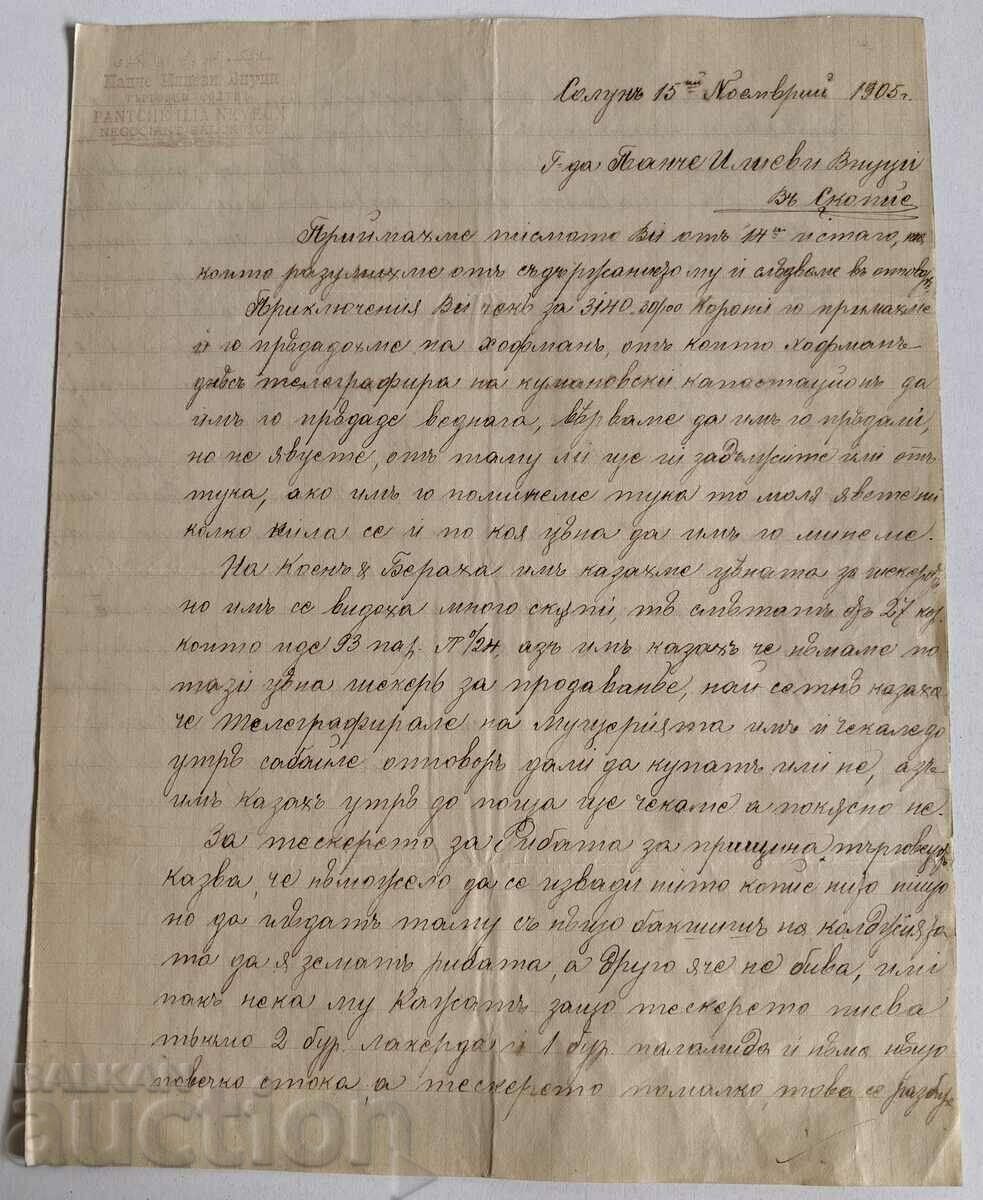 Панче Илиеви Внуци
PANTCHE ILIA NEVEUX
Солунъ 15ий Ноемврий 1905г.
Г-да Панче Илиеви Внуци
Въ Скопие
Приймахме писмото Ви отъ 14ий истаго,
които разумихме отъ съдържаниетому и слѣдваме въ отговоръ
Приключения Ви чекъ за 3140. Корони го примахме
и го прѣдадохме на Хофманъ, отъ които Хофманъ
днѣсъ телеграфира на кумановскй капостационъ да
имъ го прѣдаде веднага, вѣрваме да имъ го прѣдали,
но не явуете, отъ таму ли ще ги задължите или отъ
тука, ако имъ го поминеме тука то моля явете ни
колко кила се и по коя цѣна да имъ го минеме.
На Коенъ & Бераха имъ казахме цѣната за шекерътъ
но имъ се видоха много скупи, тѣ смѣтатъ 27 кор.
които иде 93 пар. азъ имъ казахъ че нѣмаме по
тази цѣна шекеръ за продаванѣе, най сетнѣ казаха
че телеграфирале на мущерията имъ и чекале до
утрѣ сабайле отговоръ дали да купатъ или не, азъ
имъ казахъ утрѣ до поща ще чекаме а покясно не.
За тескерето за Рибата за прищина търговецътъ
казва, че неможело да се извади нито копие нищо нищо
но да гледатъ таму съ нѣщо бакшишъ на колджията
та да я зематъ рибата, а друго яче не бива, или
пакъ нека му Кажатъ защо тескерето писва
тъкмо 2 бур. лакерда и 1 бур. паламида и нѣма нѣщо
повечко стока, а тескерето помалко, това се разбира
BALKAN
auction